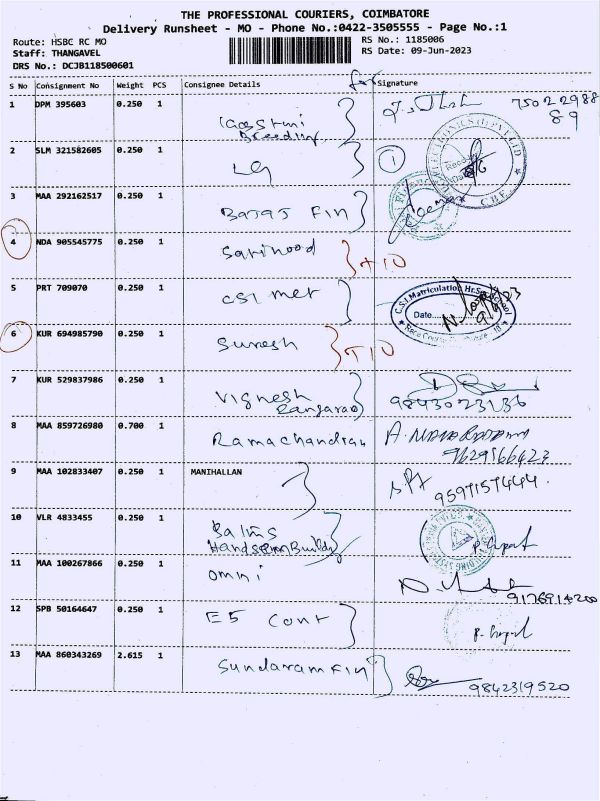 THE PROFESSIONAL COURIERS, COIMBATORE
Delivery Runsheet - MO - Phone No.:0422-3505555 - Page No.:1
Route: HSBC RC MO
RS No.: 1185006
Staff: THANGAVEL
RS Date: 09-Jun-2023
DRS No.: DCJB118500601
for
S No Consignment No Weight PCS Consignee Details Signature
1 DPM 395603 0.250 1
Breeding
89
2 SLM 321582605 0.250 1 LG 1
3 MAA 292162517 0.250 1 Bajaj Fin
4 NDA 905545775 0.250 1 Sarinood
5 PRT 709070 0.250 1 CSI met
C.S.I. Matriculation Hr.Sec School
Date
6 KUR 694985790 0.250 1 Suresh
7 KUR 529837986 0.250 1 Vignesh
Rangarao 9843023136
8 MAA 859726980 0.700 1 Ramachandran
9629566423
9 MAA 102833407 0.250 1 MANIHALLAN
9597157444
10 VLR 4833455 0.250 1
11 MAA 100267866 0.250 1 Omni
9176914200
12 SPB 50164647 0.250 1 E5 Cont
13 MAA 860343269 2.615 1 Sundaram Fin
9842319520